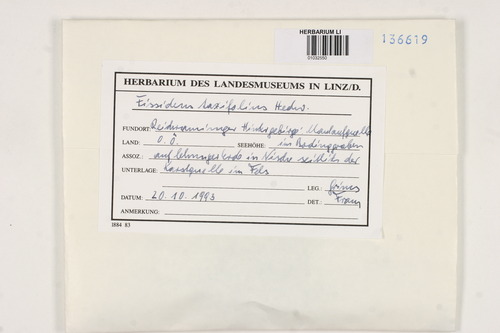 HERBARIUM LI
01032550
136619
HERBARIUM DES LANDESMUSEUMS IN LINZ/D.
Fissidens taxifolius Hedw.
FUNDORT: Reichraminger Hintergebirge:
LAND: O.Ö. SEEHÖHE: im
ASSOZ.: auf in Nische seitlich der
UNTERLAGE: Karstquelle im Fels
LEG.: Grims
DATUM: 20.10.1993 DET.: Franz
ANMERKUNG:
1884 83